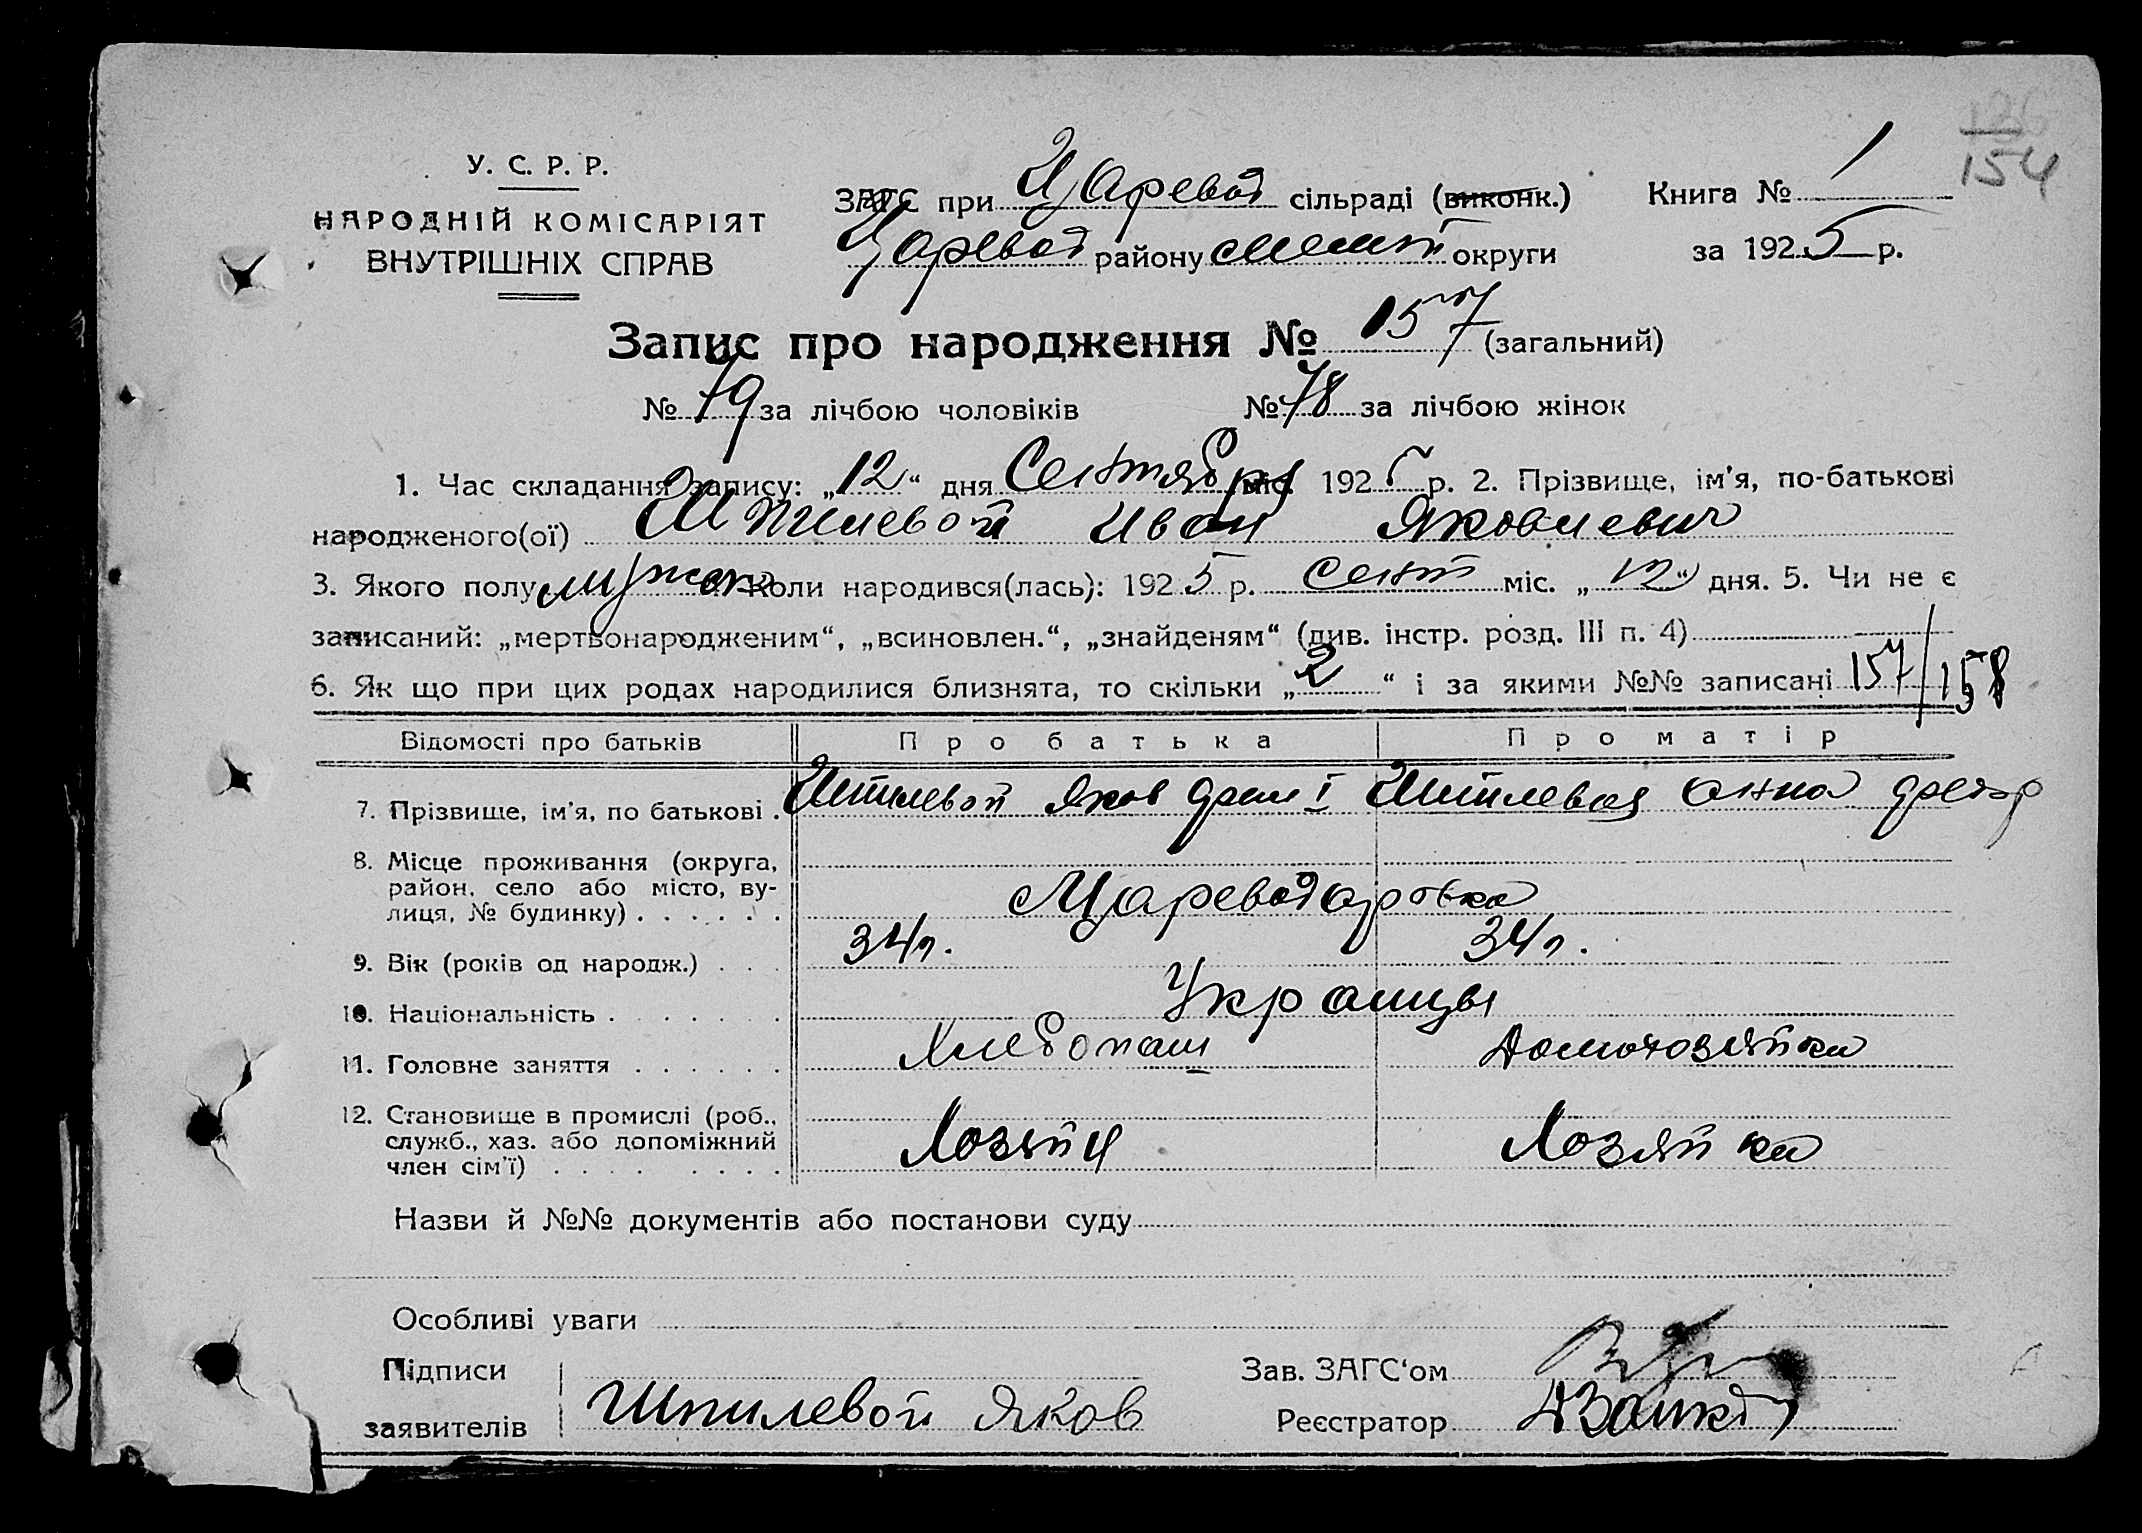 136
154
У. С. Р. Р.
НАРОДНІЙ КОМІСАРІЯТ
ВНУТРІШНІХ СПРАВ
ЗАГС при Царевод сільраді (виконк.)
Царевод району округи
Книга № 1
за 1925 р.
Запис про народження № 157 (загальний)
№ 79 за лічбою чоловіків № 78 за лічбою жінок
1. Час складання запису: „12“ дня Сентября міс. 1925 р. 2. Прізвище, ім'я, по-батькові
народженого(ої) Шпилевой Иван Яковлевич
3. Якого полу мужск 4. Коли народився(лась): 1925 р. сент міс. „12“ дня. 5. Чи не є
записаний: „мертвонародженим“, „всиновлен.“, „знайденям“ (див. інстр. розд. III п. 4)
6. Як що при цих родах народилися близнята, то скільки „2“ і за якими №№ записані 157/158
Відомості про батьків Про батька Про матір
7. Прізвище, ім'я, по батькові . Шпилевой Яков Шпилевая Анна
8. Місце проживання (округа,
район, село або місто, ву-
лиця, № будинку) . . . . . . Цареводаровка
9. Вік (років од народж.) . . . 34 л. 34 л.
10. Національність . . . . . . . Украинцы
11. Головне заняття . . . . . . Хлебопаш Домохозяйка
12. Становище в промислі (роб.,
служб., хаз. або допоміжний
член сім'ї) . . . . . . . . . Хозяин Хозяйка
Назви й №№ документів або постанови суду
Особливі уваги
Підписи
заявителів Шпилевой Яков
Зав. ЗАГС'ом
Реєстратор